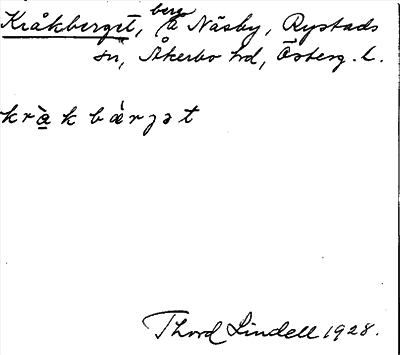 Kråkberget, berg å Näsby, Rystads
sn, Åkerbo hd, Österg. l.
kràk bǽrjət
Thord Lindell 1928.